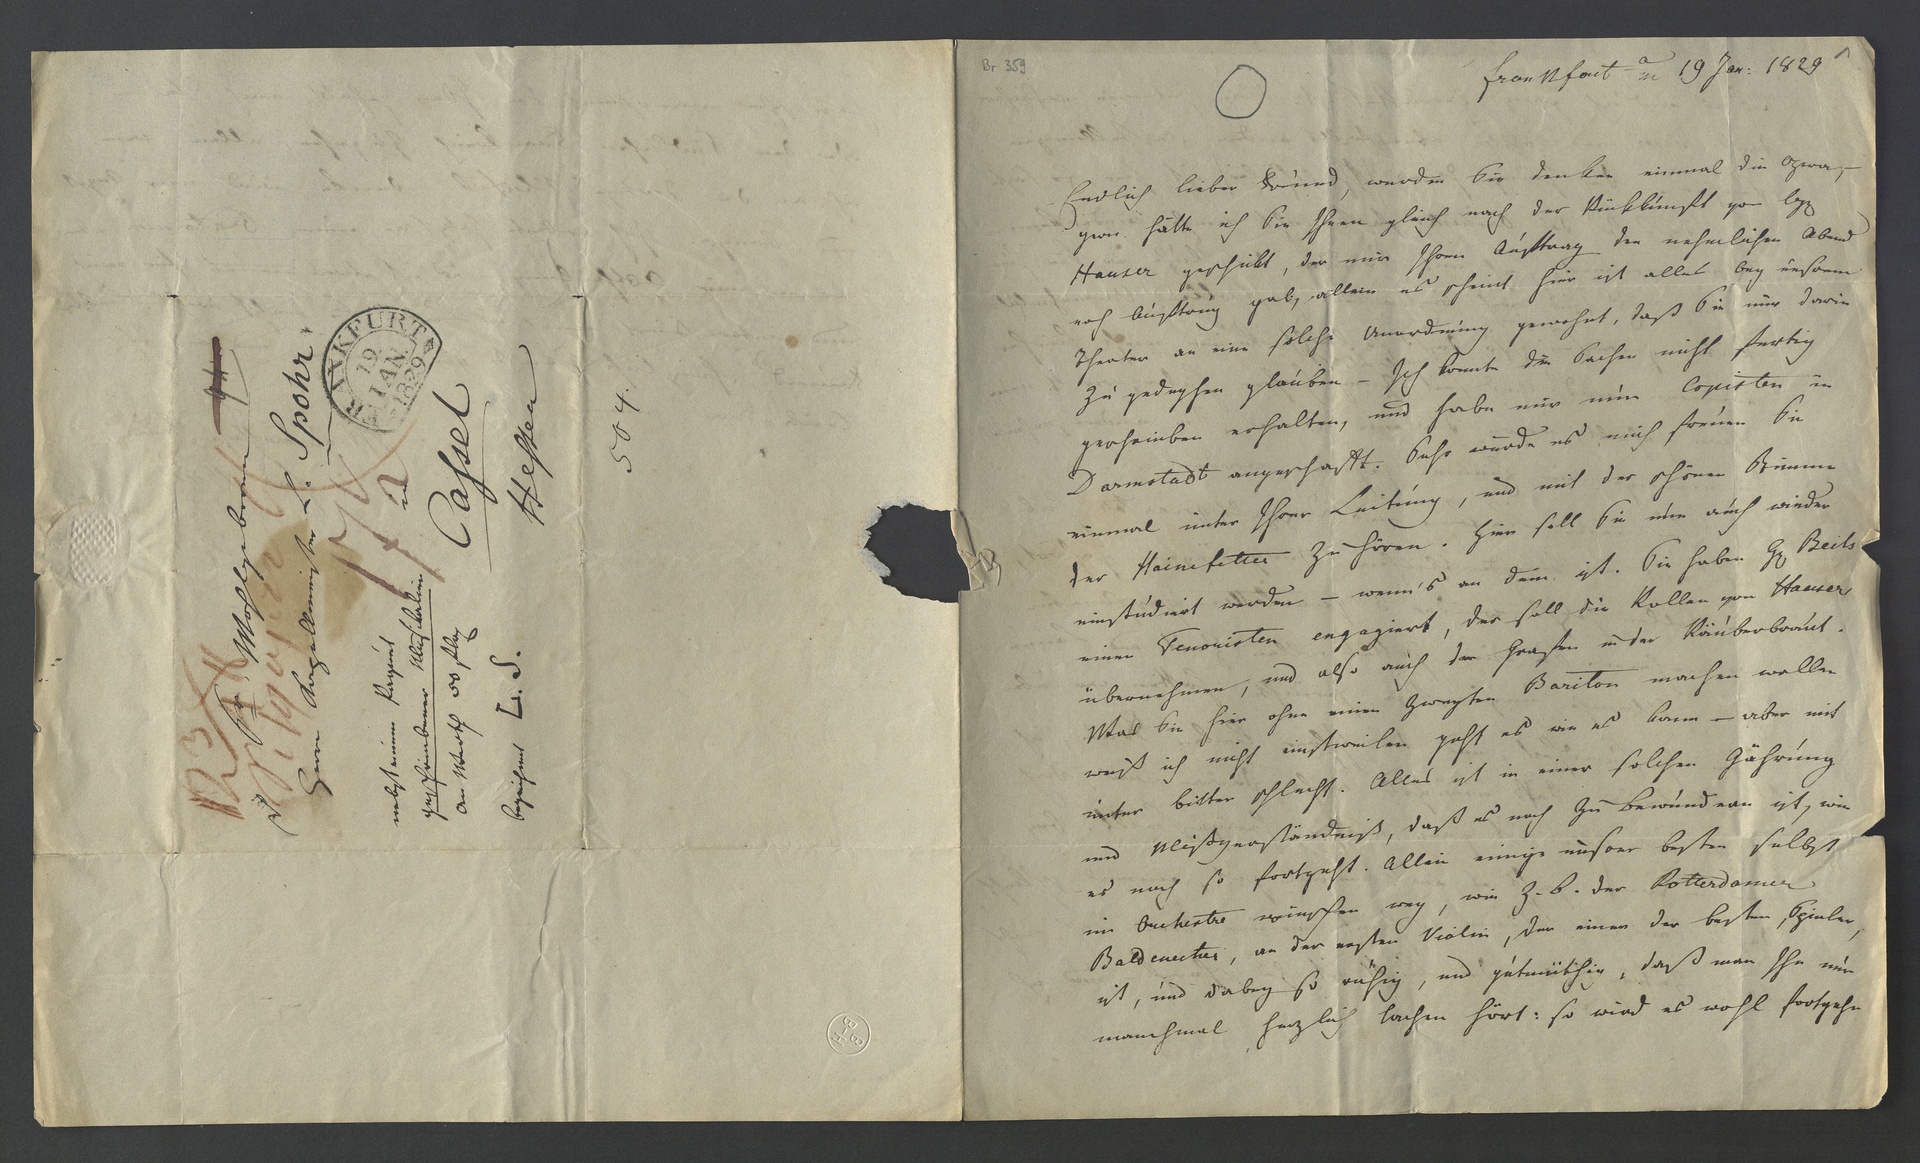 Sr Wohlgeboren
Herrn Kapellmeister L. Spohr
FRANKFURT
19
JAN.
1829
in
Cassel
Hessen
nebst einem Paquet
geschriebener Musikalien
an Werth 50
bezeichnet L.S.
504.
Br. 359
Frankfurt a m 19 Jan: 1829
Endlich lieber Freund, werden Sie denken einmal die Oper,—
gern hätte ich Sie Ihnen gleich nach der Rückkunft von
Hauser geschickt, der mir Ihren Auftrag den nehmlichen Abend
noch gab, allein es scheint hier ist alles bey unserm
Theater an eine solche Unordnung gewohnt, daß Sie nur darin
zu gedeyhen glauben – Ich konnte die Sachen nicht fertig
geschrieben erhalten, und habe mir nun Copisten in
Darmstadt angeschafft. Sehr würde es mich freuen Sie
einmal unter Ihrer Leitung, und mit der schönen Stimme
der Heinefetter zu hören. Hier soll Sie nun auch wieder
einstudiert werden – wenn's an dem ist. Sie haben H. Beils
einen Tenoristen engagiert, der soll die Rollen von Hauser
übernehmen, und also auch den Grafen in der Räuberbraut.
Was Sie hier ohne einen zweyten Bariton machen wollen
weiß ich nicht einstweilen geht es wie es kann – aber mit
unter bitter schlecht. Alles ist in einer solchen Gährung
und Mißverständniß, daß es noch zu bewundern ist, wie
es noch so fortgeht. Allein einige unsrer besten selbst
im Orchestre wünschen weg, wie z. b. der Rotterdamer
Baldenecker, an der ersten Violin, der einer der besten Spieler,
ist, und dabey so ruhig, und gutmüthig, daß man Ihn nur
manchmal herzlich lachen hört: so wird es wohl fortgehn